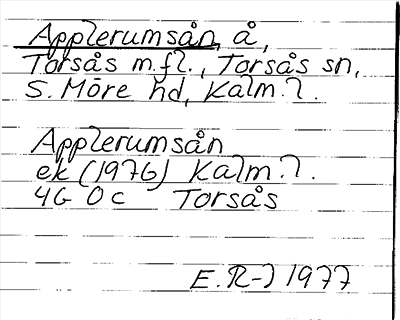 Applerumsån, å,
Torsås m.fl., Torsås sn,
S. Möre hd, Kalm.l.
Applerumsån
ek (1976) Kalm.l.
4G 0c Torsås
E.R-J 1977